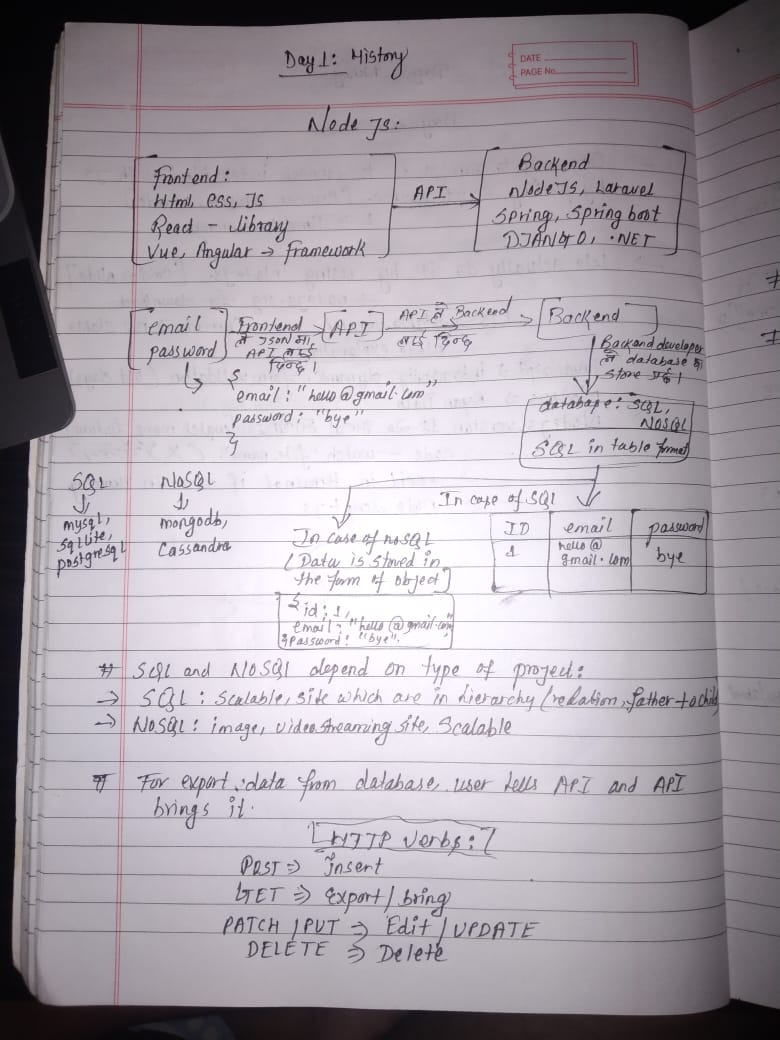 Day 1: History
DATE
PAGE No.
Node Js:
Frontend:
Html, css, Js
Read - library
Vue, Angular → Framework
API
Backend
NodeJS, Laravel
Spring, Spring boot
DJANGO, .NET
email
password
Frontend
ले JSON मा,
API लाई
दिन्छ।
API
API ले Backend
लाई दिन्छ
Backend
Backend developer
ले database मा
store गर्छ।
{
email: "hello@gmail.com"
password: "bye"
}
database: SQL,
NOSQL
SQL in table format
SQL
mysql,
Sqllite,
postgresql
NoSQL
mongodb,
Cassandra
In case of noSQL
(Data is stored in
the form of object)
{id: 1,
email: "hello@gmail.com"
password: "bye".
}
In case of SQL
ID email password
1 hello@ bye
gmail.com
# SQL and NOSQL depend on type of project:
→ SQL: Scalable, site which are in hierarchy (relation, father to child)
→ NoSQL: image, video streaming site, Scalable
# For export data from database, user tells API and API
brings it.
[HTTP verbs:]
POST => insert
GET => Export/bring
PATCH/PUT => Edit/UPDATE
DELETE => Delete